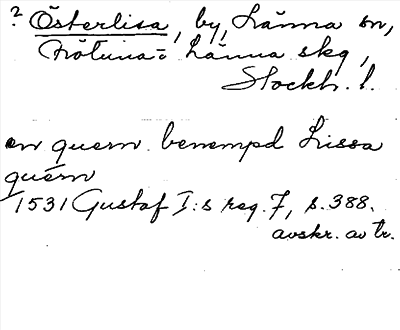 ? Österlisa, by, Länna sn,
Frötuna o Länna skg,
Stockh. l.
en quern benempd Lissa
quern
1531 Gustaf I:s reg. 7, s. 388.
avskr. av tr.